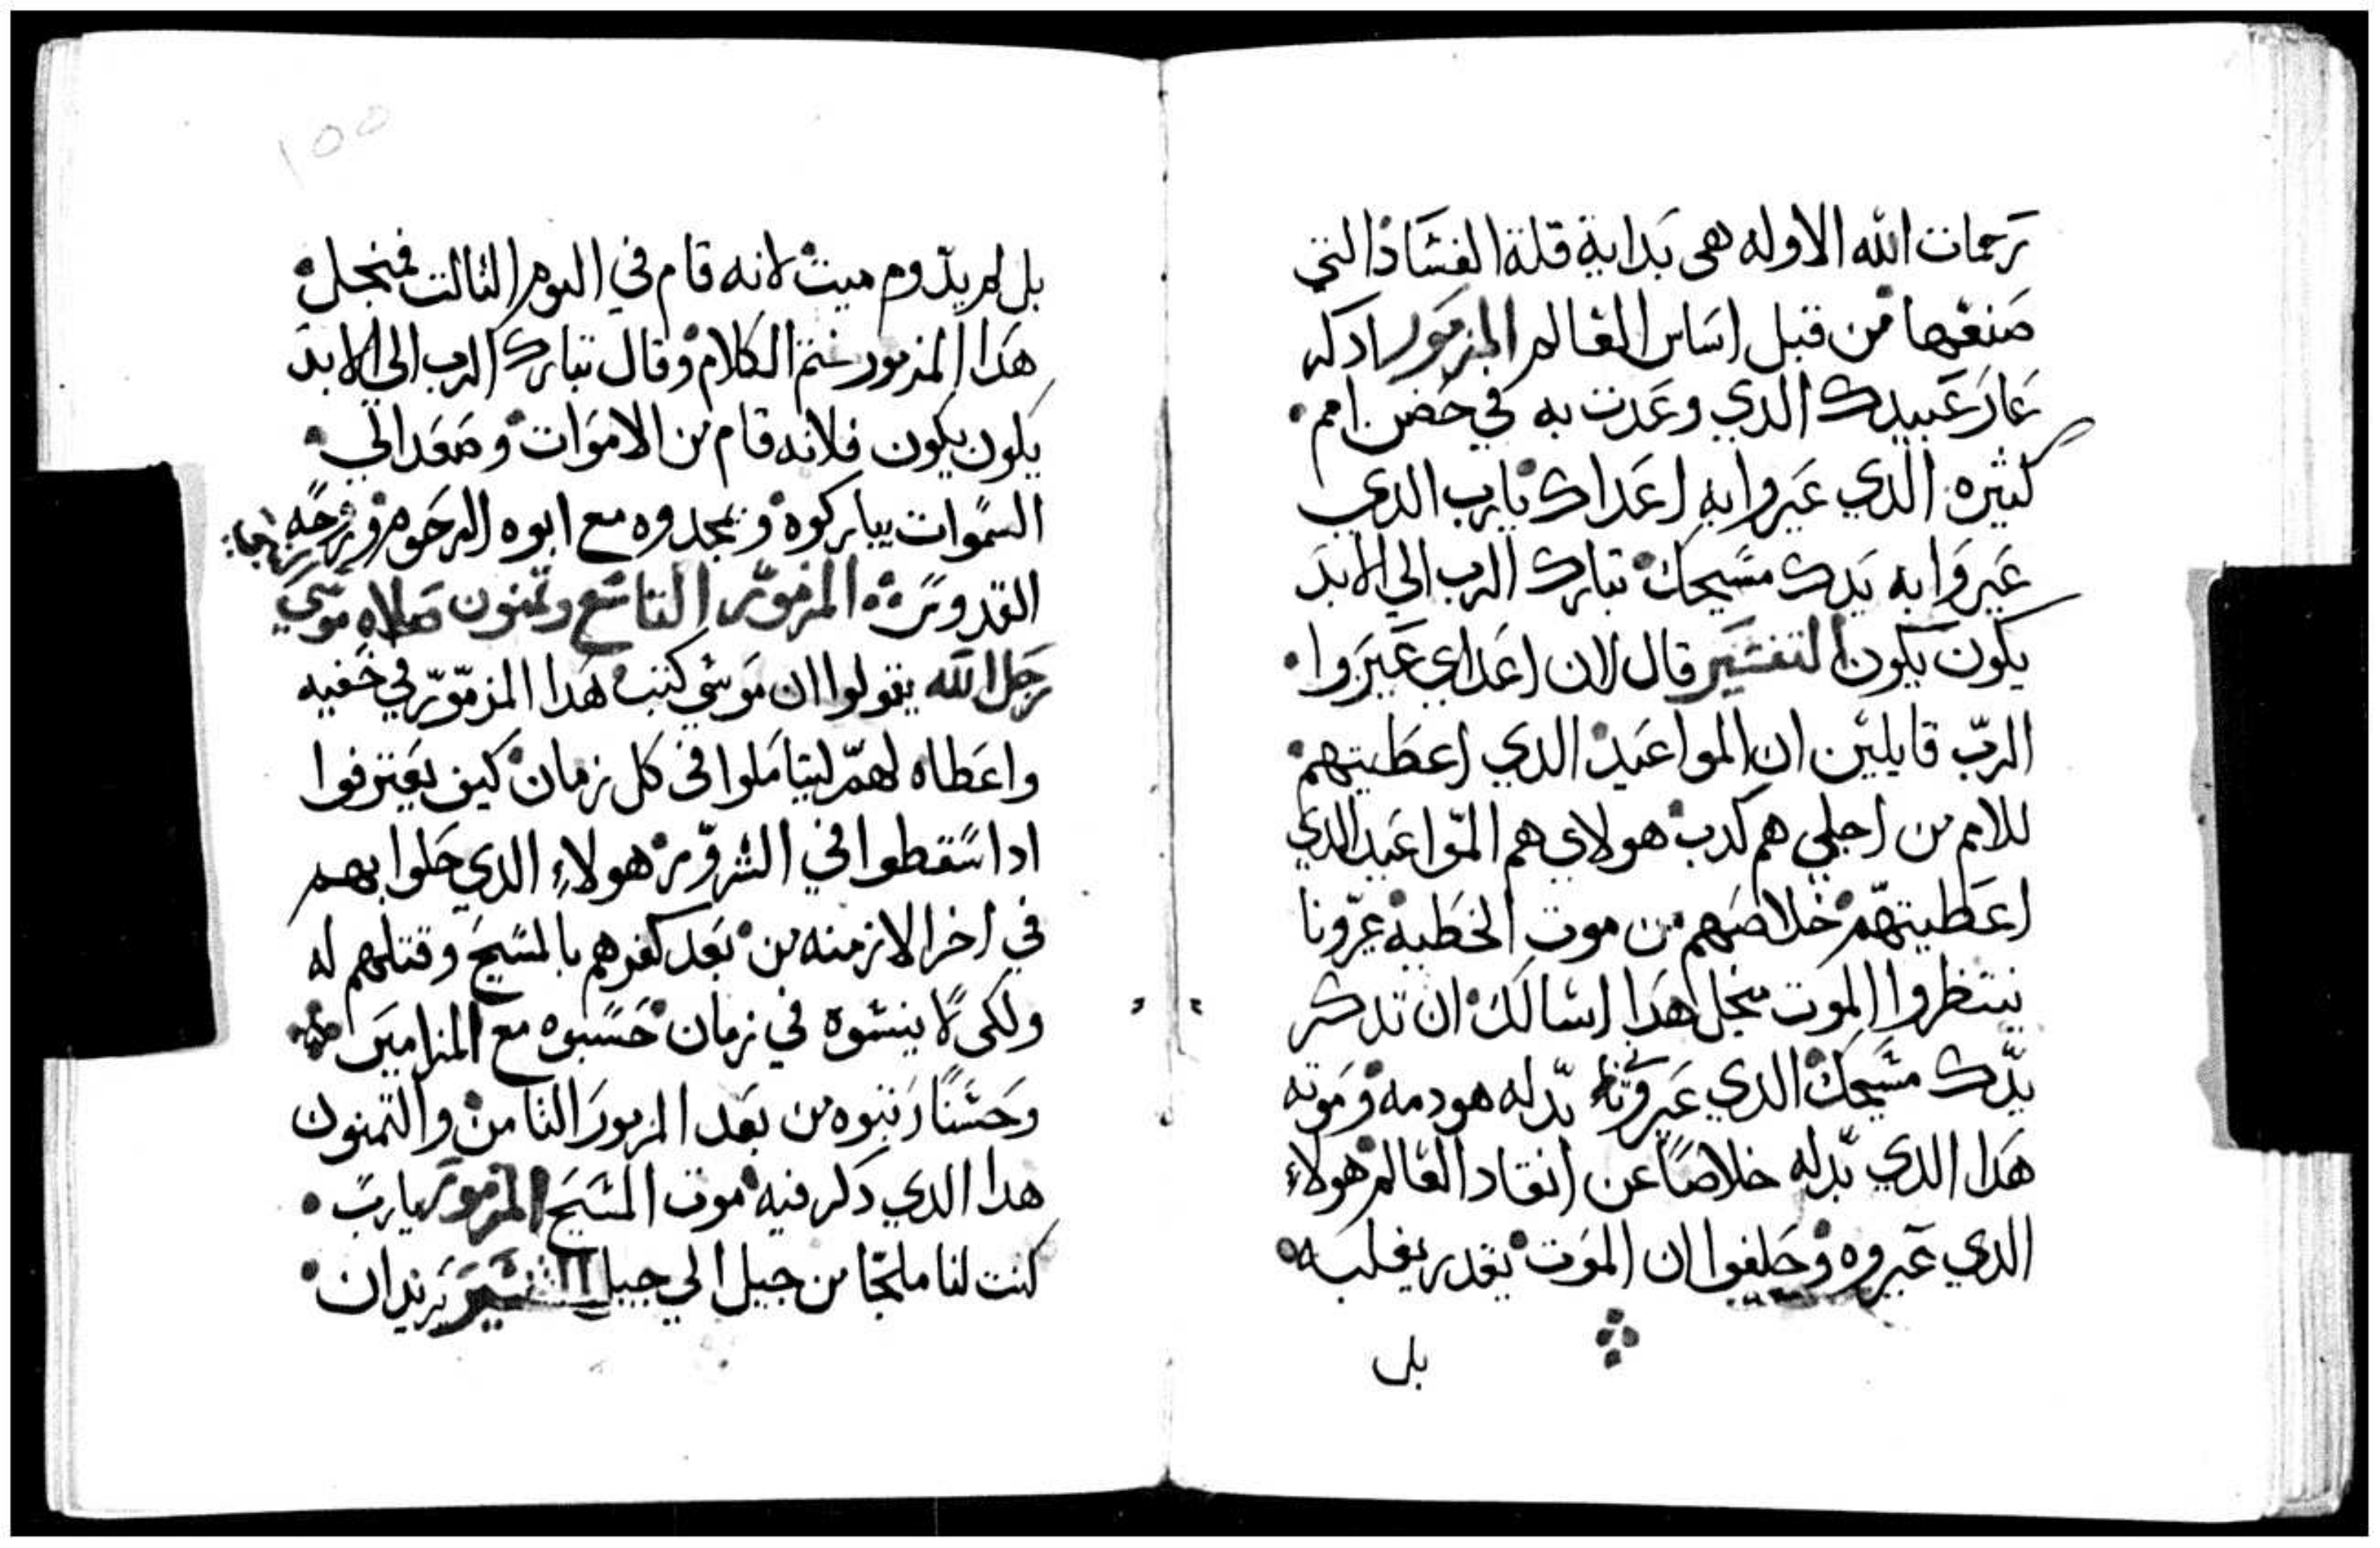 رحمات الله الاوله هى بداية قلة الفساد التي
صنعها من قبل اساس العالم المزمور ادكر
عار عبيدك الدي وعدت به في حضن امم
كثيره الدي عيروا به اعداك يارب الدي
عيروا به يدك مسيحك تبارك الرب الي الابد
يكون يكون التفسير قال لان اعداي عيروا
الرب قايلين ان المواعيد الدي اعطيتهم
للامم من اجلي هم كدب هولاي هم المواعيد الدي
اعطيتهم خلاصهم من موت الخطيه عيرونا
ينتظروا الموت فنجل هدا اسالك ان تدكر
يدك مسيحك الدي عيرونا بدله هو دمه وموته
هدا الدي بدله خلاصا عن انقاد العالم هولاء
الدي عيروه وحلفوا ان الموت يقدر يغلبه
بل
١٥٥
بل لم يدوم ميت لانه قام في اليوم الثالت فمنجل
هدا المزمور ختم الكلام وقال تبارك الرب الي الابد
يكون يكون فلانه قام من الاموات وصعد الي
السموات يباركوه ويمجدوه مع ابوه المرحوم وروحه
القدوس المزمور التاسع وتمنون صلاه موسي
رجل الله يقولوا ان موسي كتب هدا المزمور في خفيه
واعطاه لهم ليتاملوا في كل زمان كيف يعترفوا
ادا سقطوا في الشرور هولاء الدي حلوا بهم
في اخر الازمنه من بعد كفرهم بالمسيح وقتلهم له
ولكى لا ينسوه في زمان حسبوه مع المزامير
وحسنا رتبوه من بعد المزمور التامن والتمنون
هدا الدي دكر فيه موت المسيح المزمور يارب
كنت لنا ملجا من جيل الي جيل التفسير يريد ان